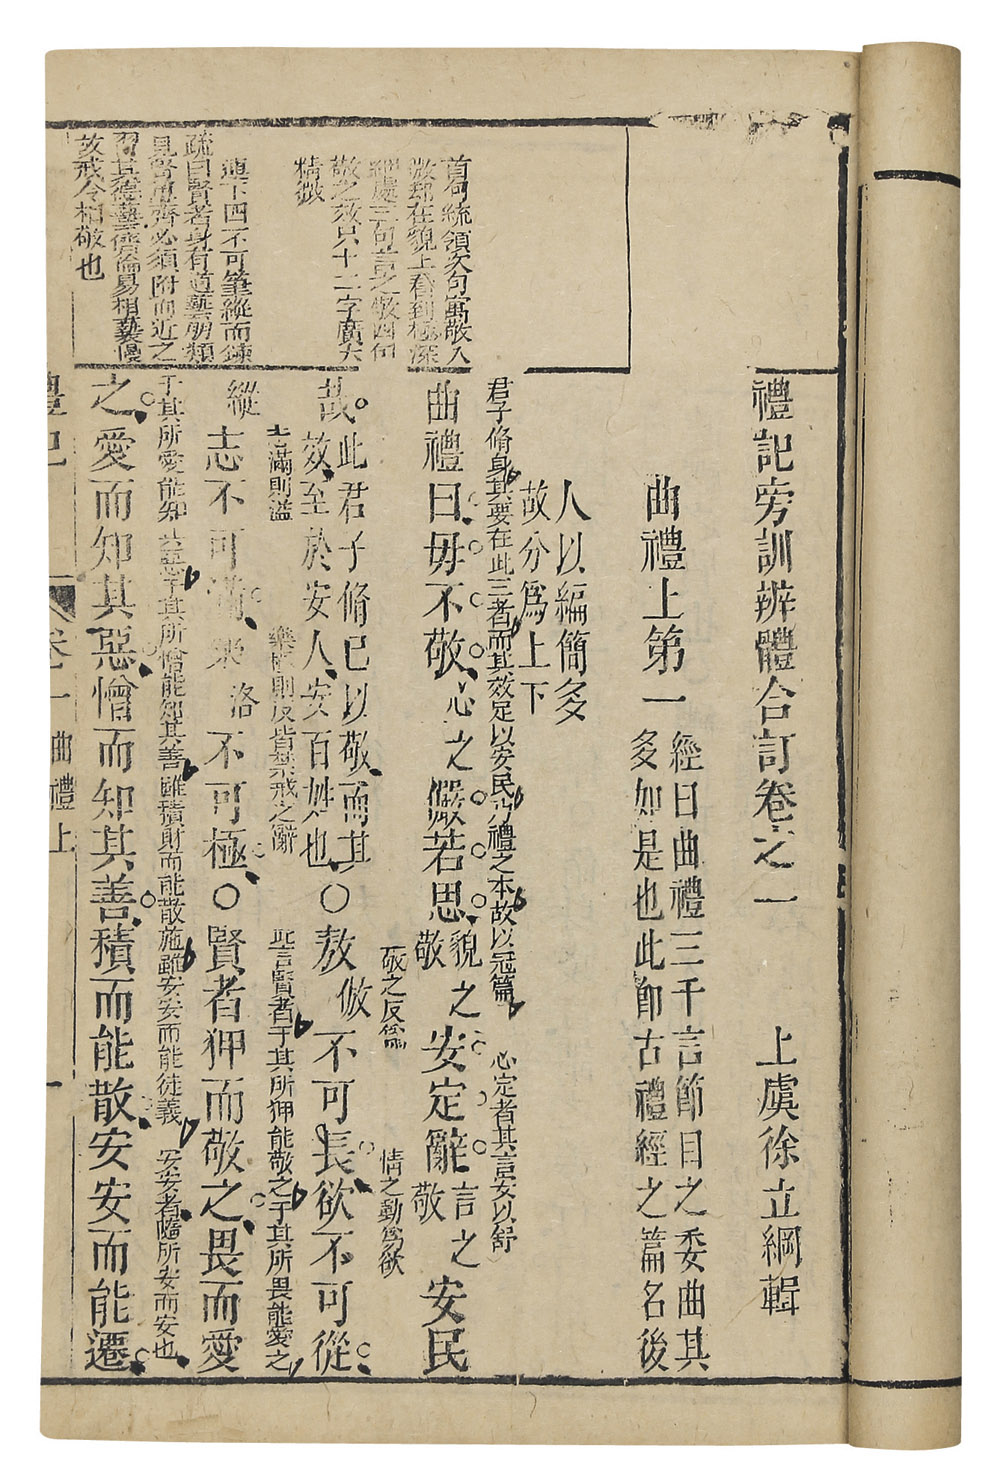 禮記旁訓辨體合訂卷之一
上虞徐立綱輯
曲禮上第一
經曰曲禮三千言節目之委曲其
多如是也此即古禮經之篇名後
人以編簡多
故分爲上下
君子脩身其要在此三者而其效足以安民乃禮之本故以冠篇
心定者其言安以舒
曲禮曰毋不敬
心之
儼若思
貌之
敬
安定辭
言之
敬
安民
敬之反爲
情之動爲欲
哉
此君子脩己以敬而其
效至於安人安百姓也
○敖
倣
不可長欲不可從
志滿則溢
樂極則反皆禁戒之辭
此言賢者于其所狎能敬之于其所畏能愛之
縱
志不可滿樂
洛
不可極○賢者狎而敬之畏而愛
于其所愛能知其惡于其所憎能知其善雖積財而能散施雖安安而能徒義
安安者隨所安而安也
之愛而知其惡憎而知其善積而能散安安而能遷
首句統領次句寓敬入
微郄在貌上看到極深
細處三句言之敬四句
敬之效只十二字廣大
精微
連下四不可筆縱而鍊
疏曰賢者身有道藝朋類
見賢思齊必須附而近之
習其德藝儕倫易相褻慢
故戒令相敬也
禮記
卷一
曲禮上
一